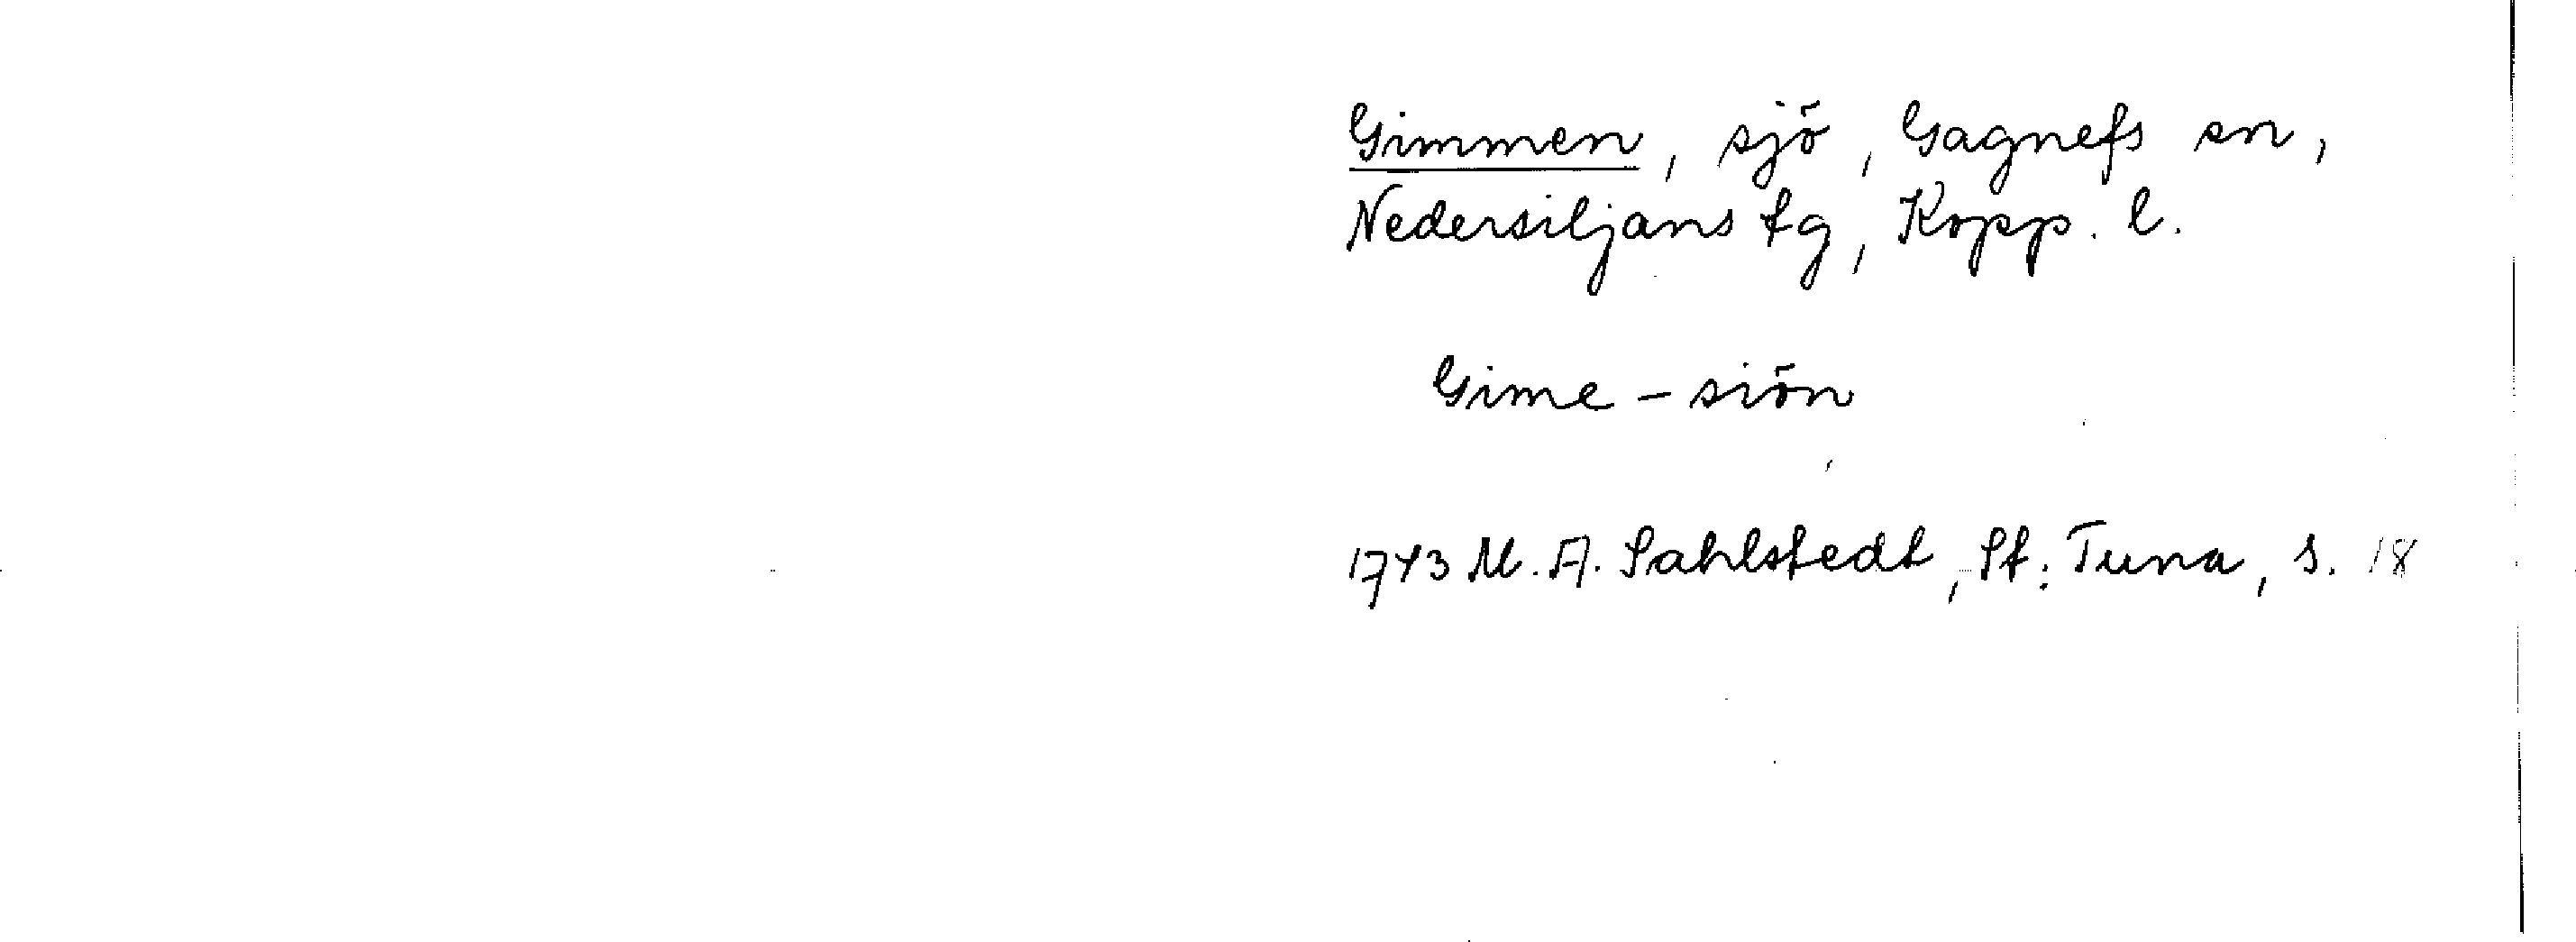 Gimmen, sjö, Gagnefs sn,
Nedersiljans tg, Kopp. l.
Gime - siön
1743 M. A. Sahlstedt, St. Tuna, s. 18